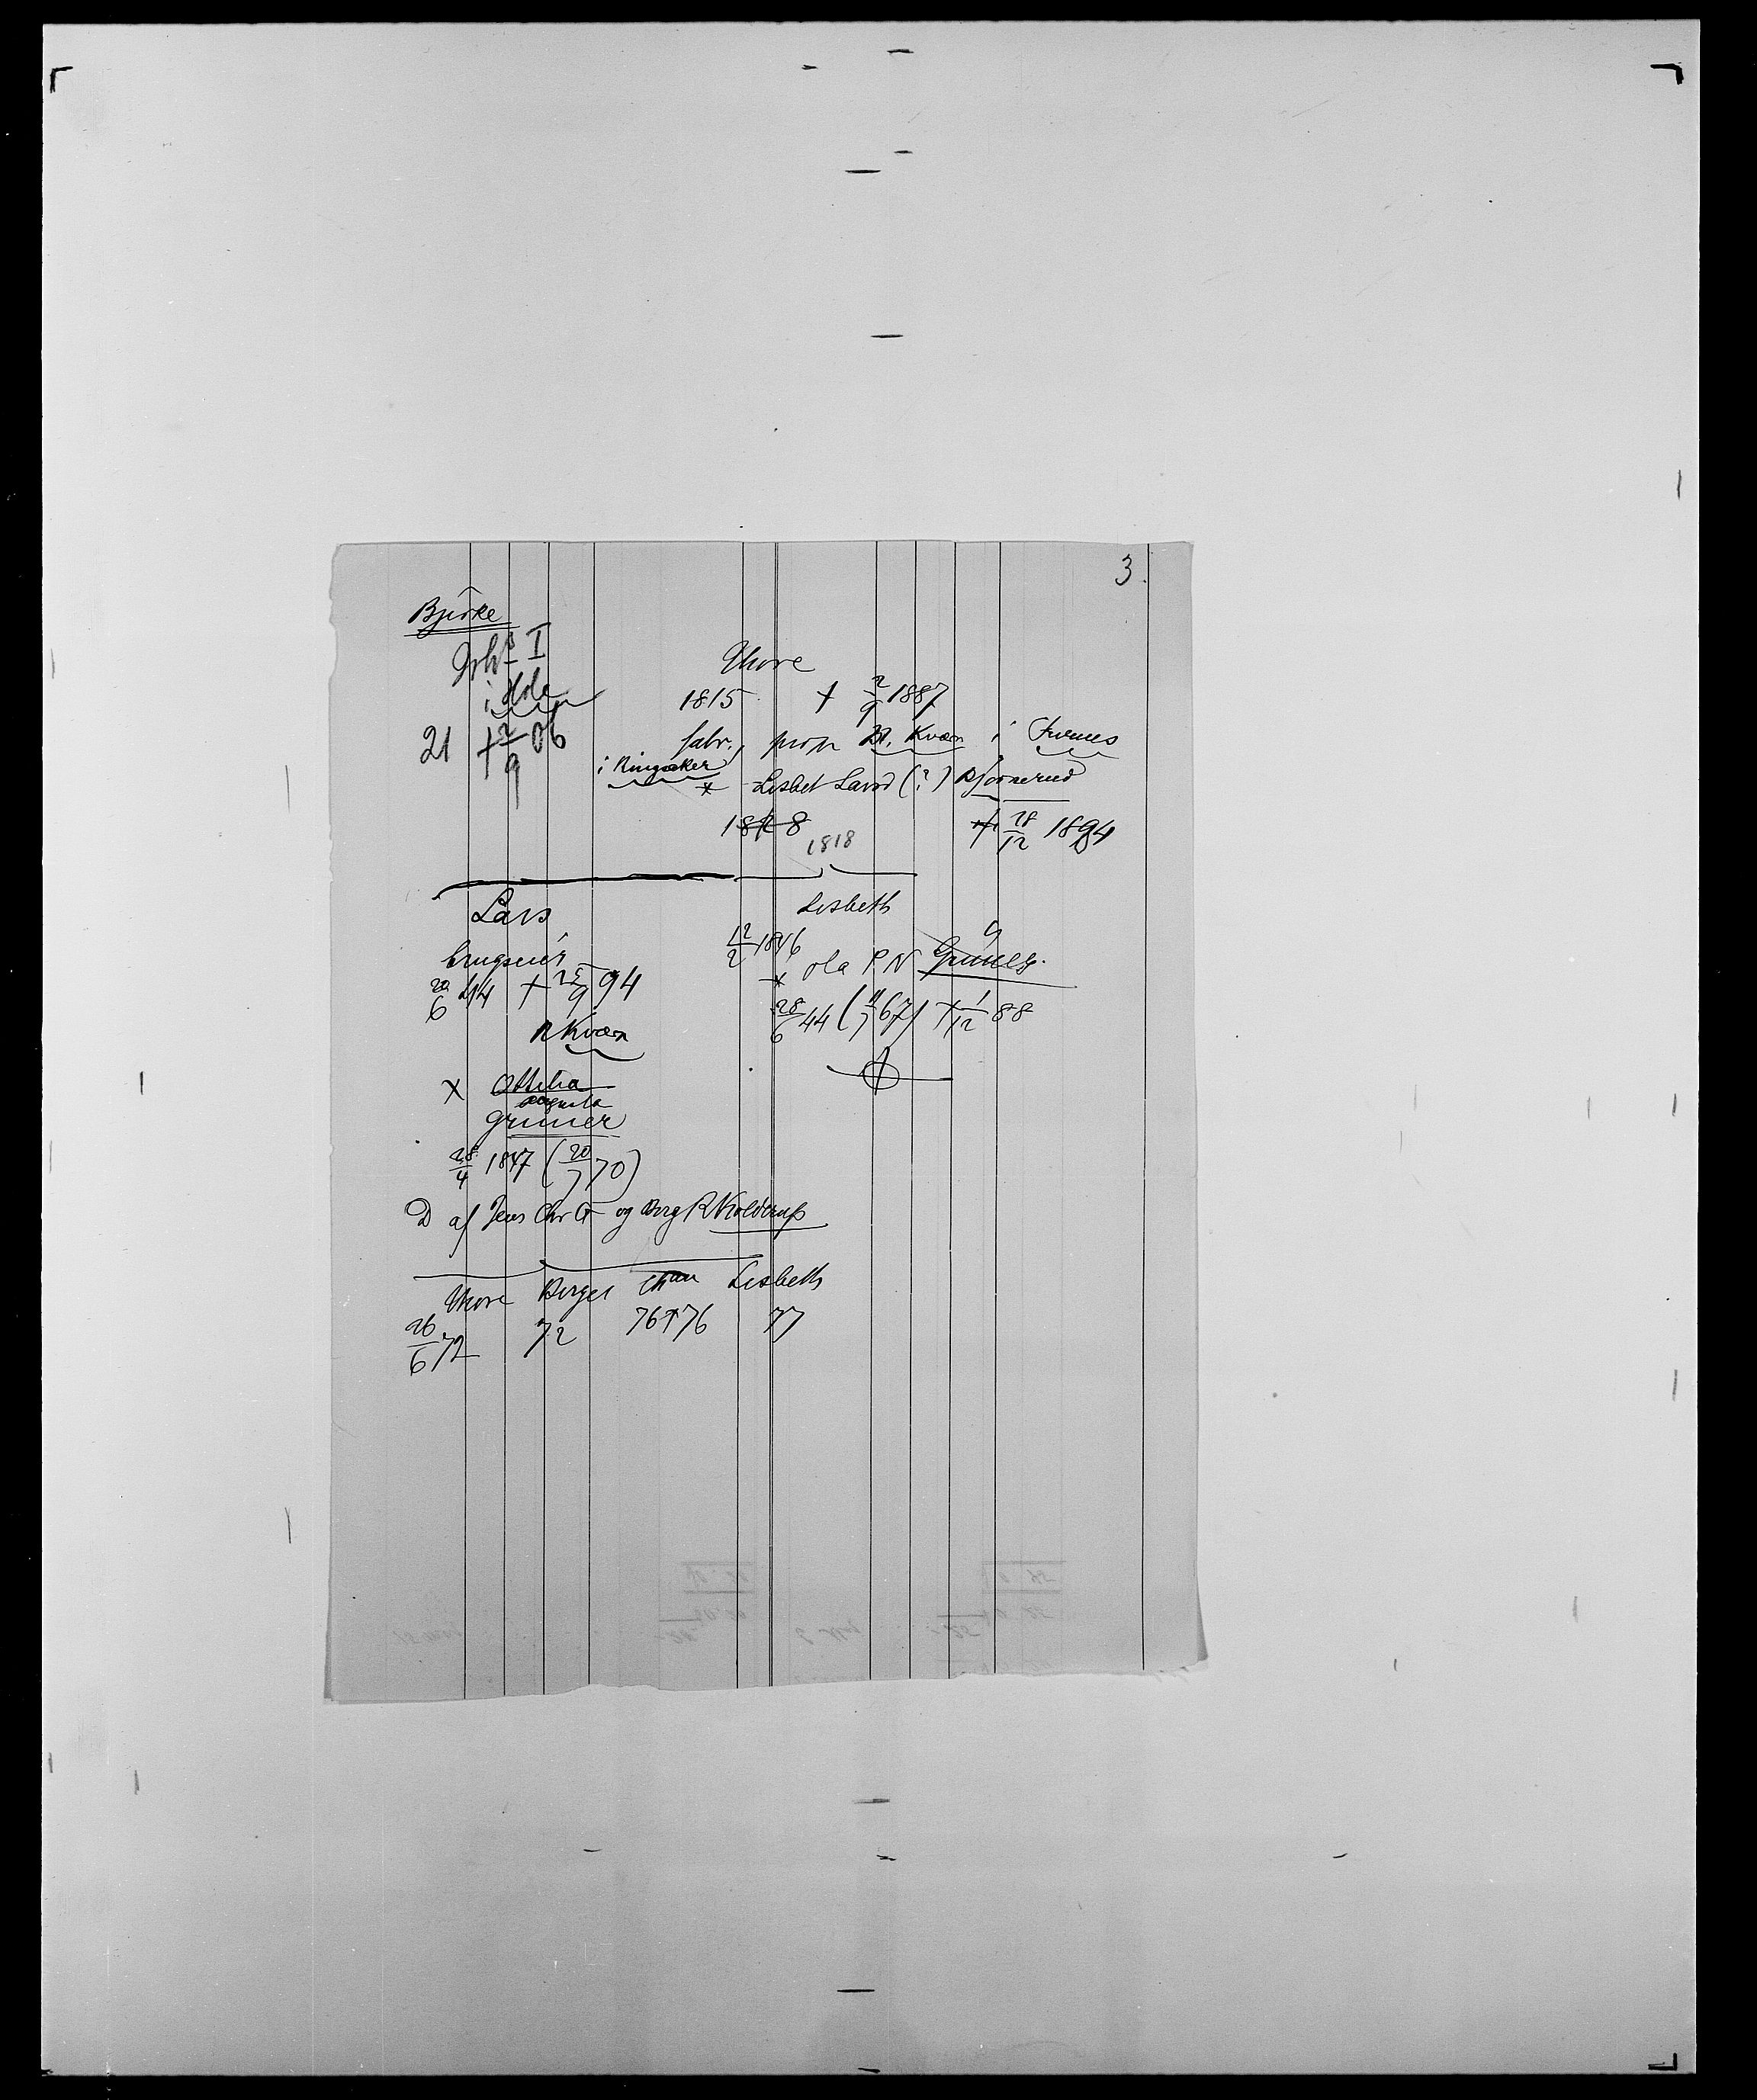 3.
Bjørke
I
i Hole
21 † 2/9 06
Thore
1815 † 2/9 1887
fabr., prop N. Kværn i Furnes
i Ringsaker
x Lisbet Larsd (?) Bjørnerud
1828
1818
† 28/12 1894
Lars
brugseier
20/6 44 † 25/9 94
N Kværn
x Ottilia
Augusta
Grüner
28/4 1847 (20/7 70)
D af Jens Chr G og Berg R N Kolderup
Lisbeth
12/2 1846
x Ola P N Grüner
28/6 44 (11/7 67) † 1/12 88
Thore Birger Chan Lisbeth
26/6 72 72 76 † 76 77